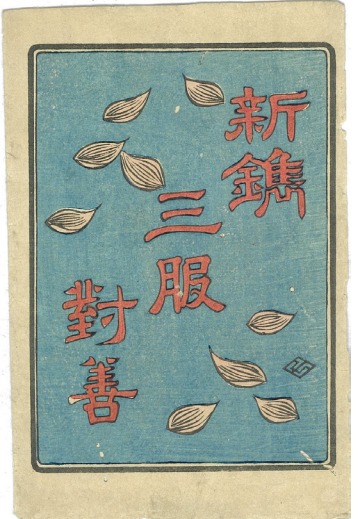 新鐫
三服
對善